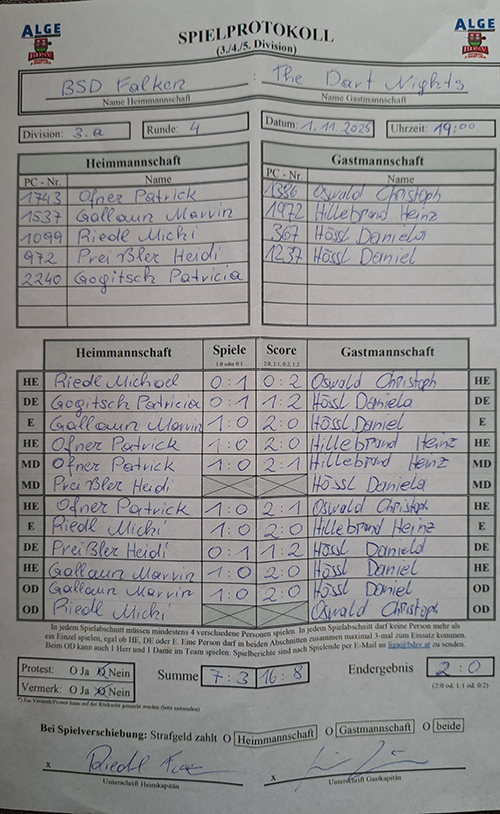 ALGE
ALGE
SPIELPROTOKOLL
(3./4./5. Division)
BSD Falken : The Dart Nights
Name Heimmannschaft Name Gastmannschaft
Division: 3.a Runde: 4 Datum: 1.11.2025 Uhrzeit: 19:00
Heimmannschaft Gastmannschaft
PC - Nr. Name PC - Nr. Name
1743 Ofner Patrick 1386 Oswald Christoph
1537 Gallaun Marvin 1972 Hillebrand Heinz
1099 Riedl Michi 367 Hössl Daniela
972 Preißler Heidi 1237 Hössl Daniel
2240 Gogitsch Patricia
Heimmannschaft Spiele Score Gastmannschaft
1:0 oder 0:1 2:0, 2:1, 0:2, 1:2
HE Riedl Michael 0:1 0:2 Oswald Christoph HE
DE Gogitsch Patricia 0:1 1:2 Hössl Daniela DE
E Gallaun Marvin 1:0 2:0 Hössl Daniel E
HE Ofner Patrick 1:0 2:0 Hillebrand Heinz HE
MD Ofner Patrick 1:0 2:1 Hillebrand Heinz MD
MD Preißler Heidi Hössl Daniela MD
HE Ofner Patrick 1:0 2:1 Oswald Christoph HE
E Riedl Michi 1:0 2:0 Hillebrand Heinz E
DE Preißler Heidi 0:1 1:2 Hössl Daniela DE
HE Gallaun Marvin 1:0 2:0 Hössl Daniel HE
OD Gallaun Marvin 1:0 2:0 Hössl Daniel OD
OD Riedl Michi Oswald Christoph OD
In jedem Spielabschnitt müssen mindestens 4 verschiedene Personen spielen. In jedem Spielabschnitt darf keine Person mehr als
ein Einzel spielen, egal ob HE, DE oder E. Eine Person darf in beiden Abschnitten zusammen maximal 3-mal zum Einsatz kommen.
Beim OD kann auch 1 Herr und 1 Dame im Team spielen. Spielberichte sind nach Spielende per E-Mail an liga@bdsv.at zu senden.
Protest: O Ja O Nein Summe 7:3 16:8 Endergebnis 2:0
Vermerk: O Ja O Nein (2:0 od. 1:1 od. 0:2)
Bei Spielverschiebung: Strafgeld zahlt O Heimmannschaft O Gastmannschaft O beide
x Riedl x
Unterschrift Heimkapitän Unterschrift Gastkapitän